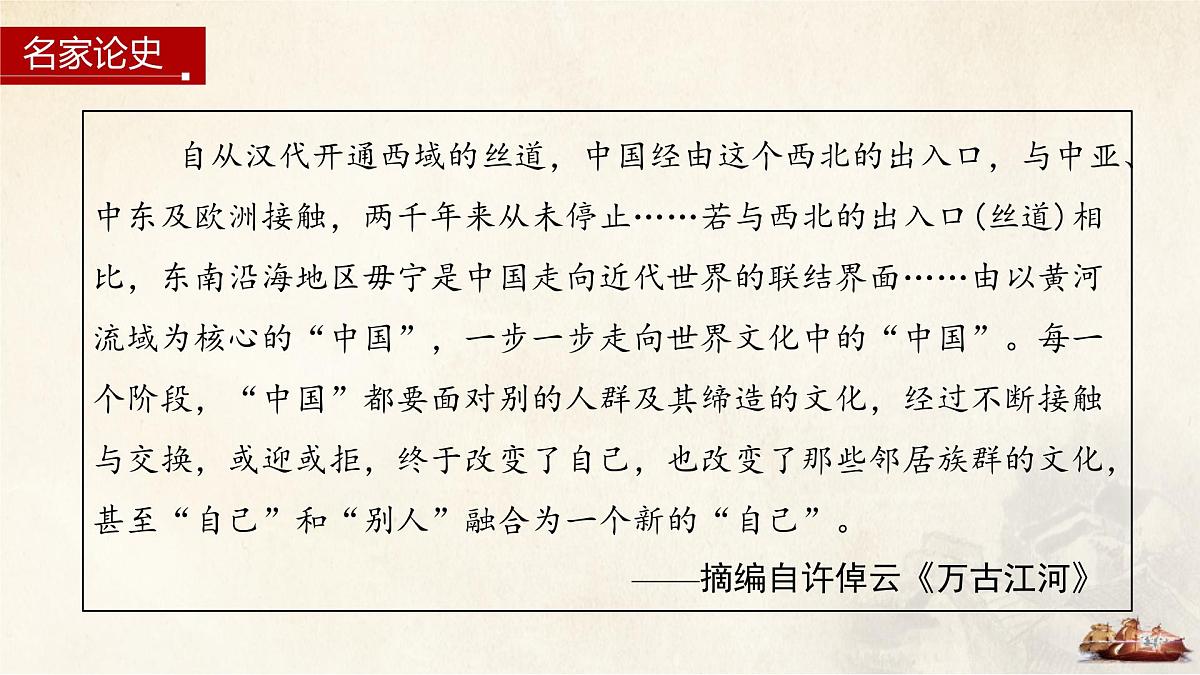 名家论史
自从汉代开通西域的丝道，中国经由这个西北的出入口，与中亚、
中东及欧洲接触，两千年来从未停止……若与西北的出入口(丝道)相
比，东南沿海地区毋宁是中国走向近代世界的联结界面……由以黄河
流域为核心的“中国”，一步一步走向世界文化中的“中国”。每一
个阶段，“中国”都要面对别的人群及其缔造的文化，经过不断接触
与交换，或迎或拒，终于改变了自己，也改变了那些邻居族群的文化，
甚至“自己”和“别人”融合为一个新的“自己”。
——摘编自许倬云《万古江河》